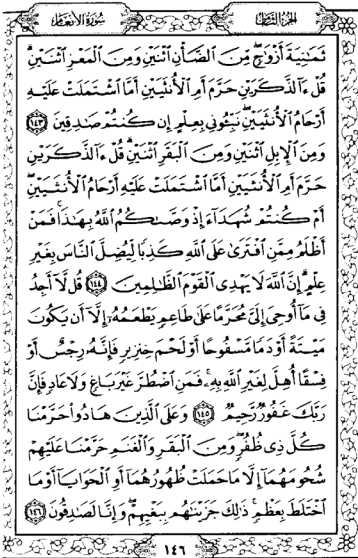 سورة الأنعام
الجزء الثامن
ثَمَٰنِيَةَ أَزْوَٰجٍ مِّنَ ٱلضَّأْنِ ٱثْنَيْنِ وَمِنَ ٱلْمَعْزِ ٱثْنَيْنِ
قُلْ ءَآلذَّكَرَيْنِ حَرَّمَ أَمِ ٱلْأُنثَيَيْنِ أَمَّا ٱشْتَمَلَتْ عَلَيْهِ
أَرْحَامُ ٱلْأُنثَيَيْنِ نَبِّـُٔونِى بِعِلْمٍ إِن كُنتُمْ صَٰدِقِينَ ١٤٣
وَمِنَ ٱلْإِبِلِ ٱثْنَيْنِ وَمِنَ ٱلْبَقَرِ ٱثْنَيْنِ قُلْ ءَآلذَّكَرَيْنِ
حَرَّمَ أَمِ ٱلْأُنثَيَيْنِ أَمَّا ٱشْتَمَلَتْ عَلَيْهِ أَرْحَامُ ٱلْأُنثَيَيْنِ
أَمْ كُنتُمْ شُهَدَآءَ إِذْ وَصَّىٰكُمُ ٱللَّهُ بِهَٰذَا فَمَنْ
أَظْلَمُ مِمَّنِ ٱفْتَرَىٰ عَلَى ٱللَّهِ كَذِبًا لِّيُضِلَّ ٱلنَّاسَ بِغَيْرِ
عِلْمٍ إِنَّ ٱللَّهَ لَا يَهْدِى ٱلْقَوْمَ ٱلظَّٰلِمِينَ ١٤٤ قُل لَّآ أَجِدُ
فِى مَآ أُوحِىَ إِلَىَّ مُحَرَّمًا عَلَىٰ طَاعِمٍ يَطْعَمُهُۥٓ إِلَّآ أَن يَكُونَ
مَيْتَةً أَوْ دَمًا مَّسْفُوحًا أَوْ لَحْمَ خِنزِيرٍ فَإِنَّهُۥ رِجْسٌ أَوْ
فِسْقًا أُهِلَّ لِغَيْرِ ٱللَّهِ بِهِۦ فَمَنِ ٱضْطُرَّ غَيْرَ بَاغٍ وَلَا عَادٍ فَإِنَّ
رَبَّكَ غَفُورٌ رَّحِيمٌ ١٤٥ وَعَلَى ٱلَّذِينَ هَادُوا۟ حَرَّمْنَا
كُلَّ ذِى ظُفُرٍ وَمِنَ ٱلْبَقَرِ وَٱلْغَنَمِ حَرَّمْنَا عَلَيْهِمْ
شُحُومَهُمَآ إِلَّا مَا حَمَلَتْ ظُهُورُهُمَآ أَوِ ٱلْحَوَايَآ أَوْ مَا
ٱخْتَلَطَ بِعَظْمٍ ذَٰلِكَ جَزَيْنَٰهُم بِبَغْيِهِمْ وَإِنَّا لَصَٰدِقُونَ ١٤٦
١٤٦